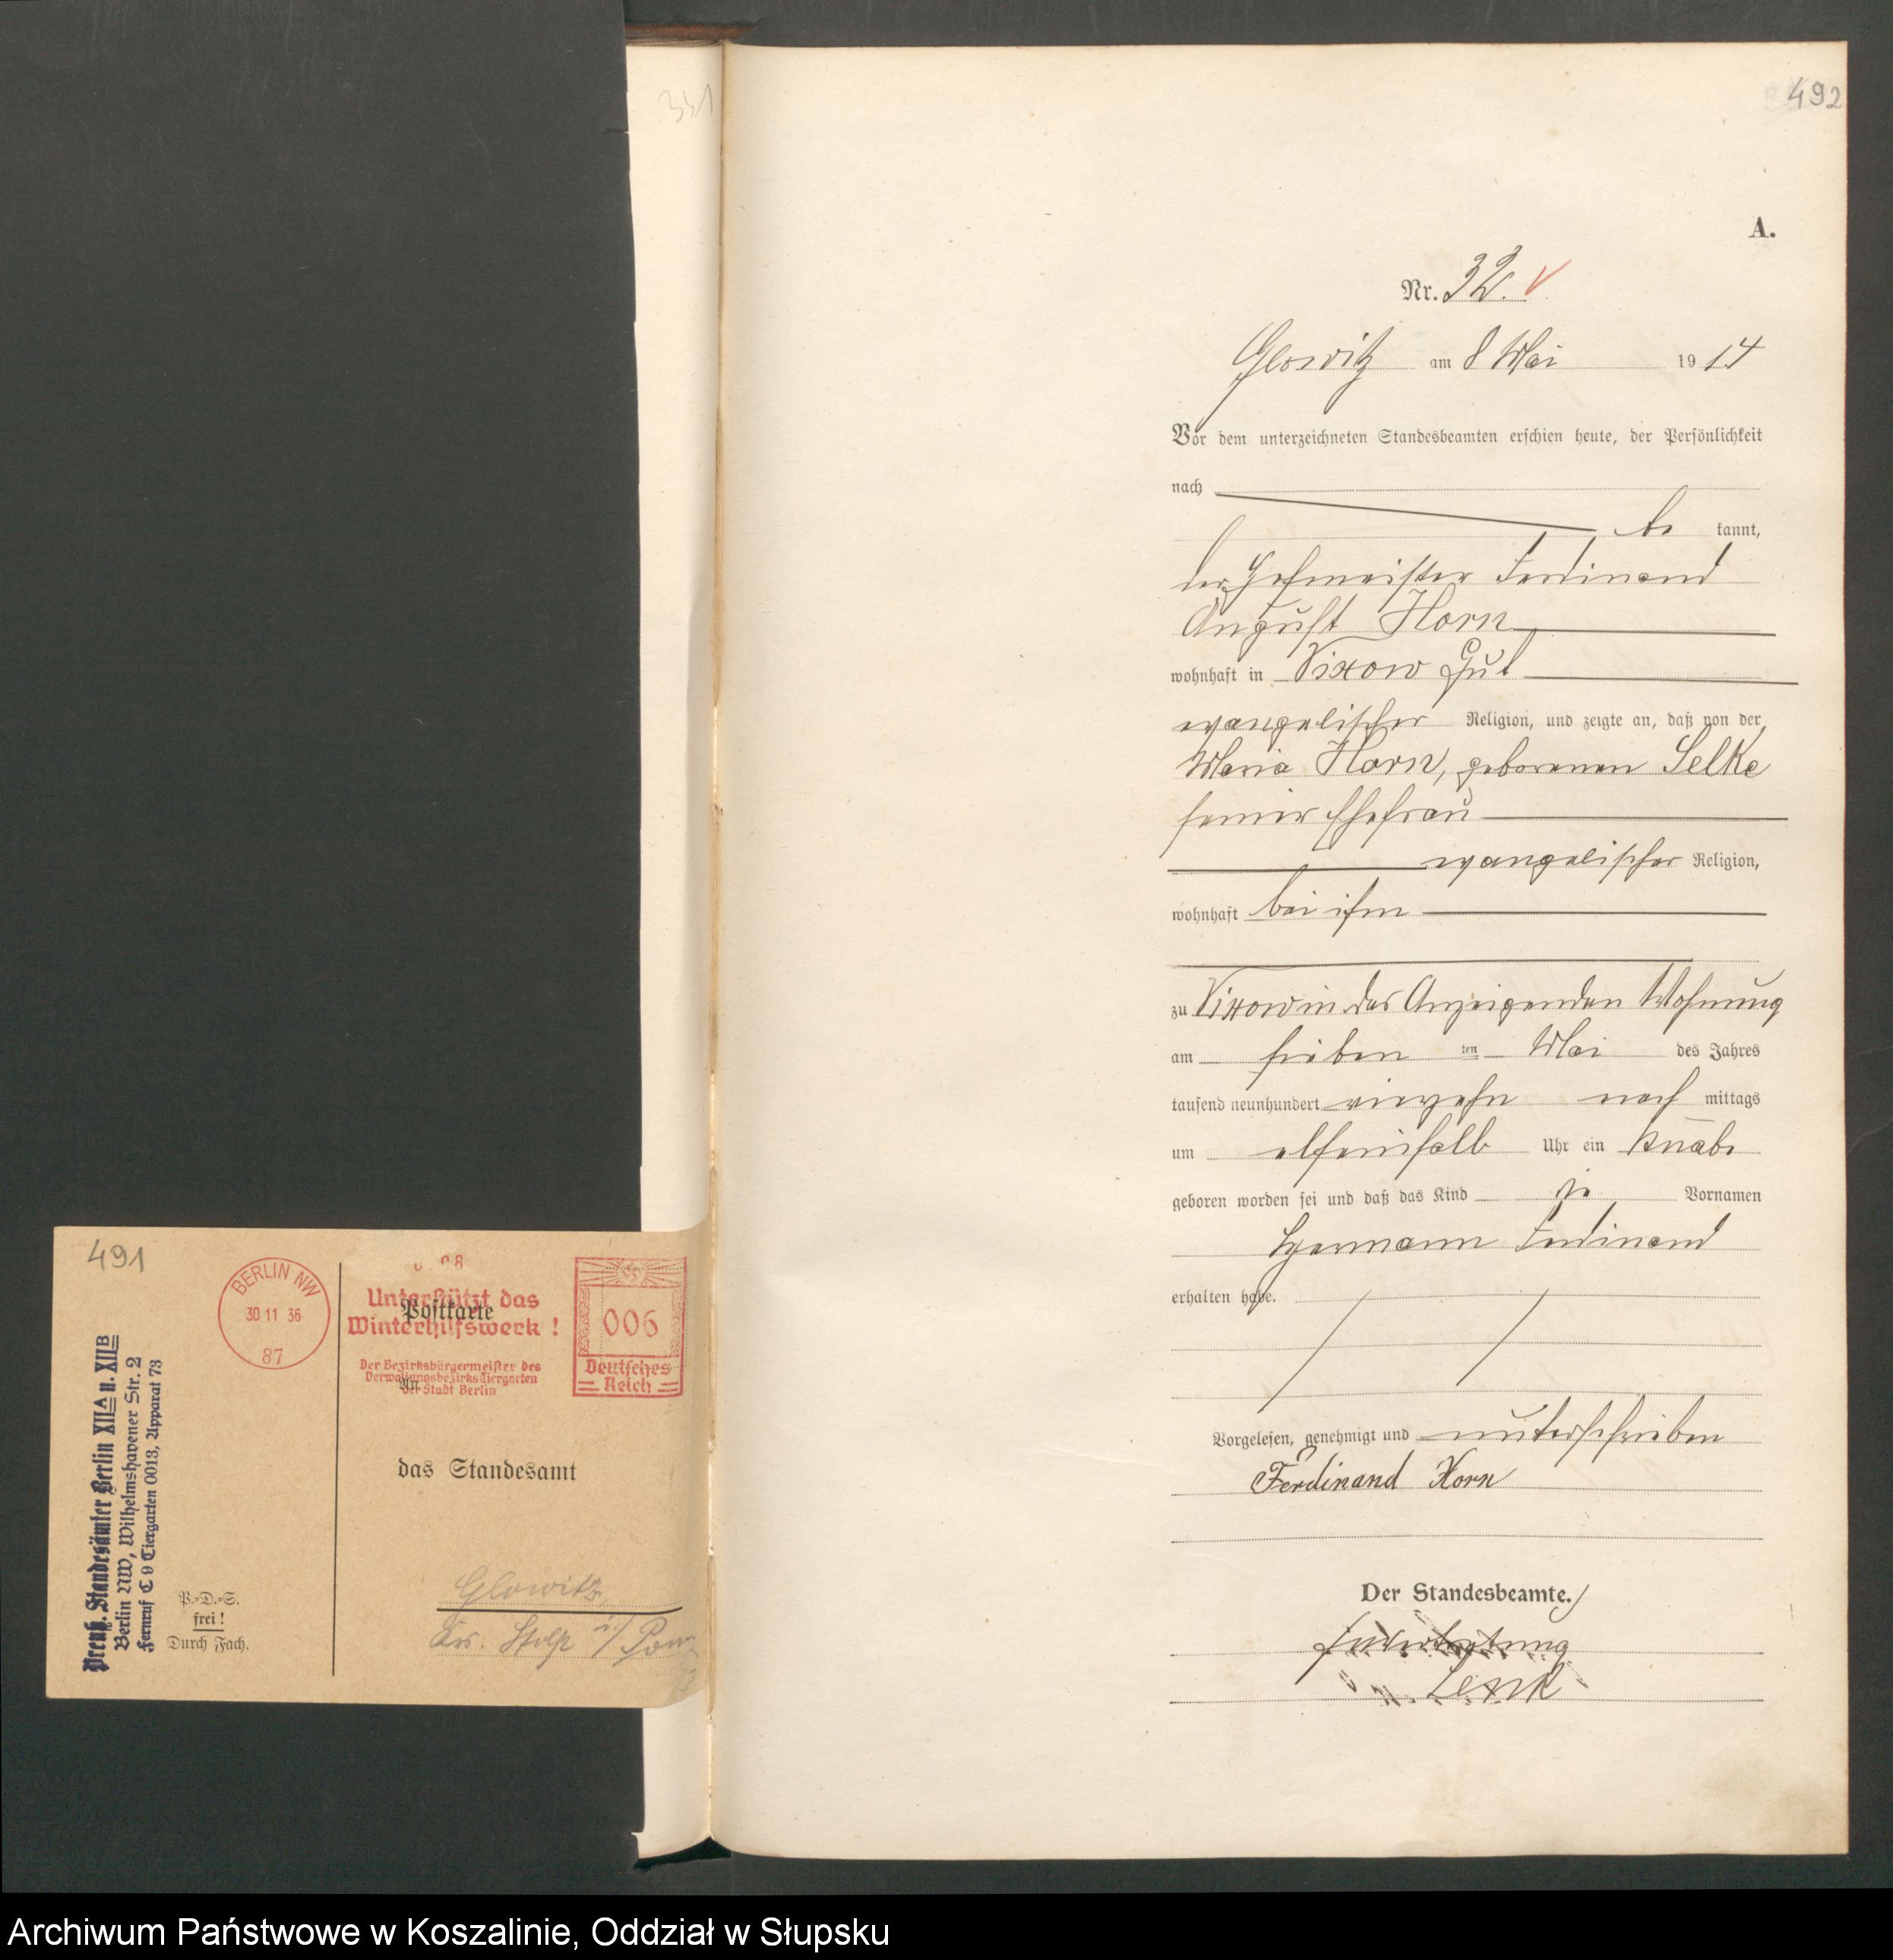 341
492
A.
Nr. 32.
Glowitz am 8 Mai 1914
Vor dem unterzeichneten Standesbeamten erschien heute, der Persönlichkeit
nach
be kannt,
der Hofmeister Ferdinand
August Horn
wohnhaft in Vixow Gut
evangelischer Religion, und zeigte an, daß von der
Maria Horn, geborenen Selke
seiner Ehefrau
evangelischer Religion,
wohnhaft bei ihm
zu Vixow in des Anzeigenden Wohnung
am sieben ten Mai des Jahres
tausend neunhundert vierzehn nach mittags
um elfeinhalb Uhr ein Knabe
geboren worden sei und daß das Kind die Vornamen
Hermann Ferdinand
erhalten habe.
Vorgelesen, genehmigt und unterschrieben
Ferdinand Horn
Der Standesbeamte.
In Vertretung
Lenk
491
BERLIN NW
30 11 36
87
Unterstützt das
Winterhilfswerk !
Der Bezirksbürgermeister des
Verwaltungsbezirks Tiergarten
der Stadt Berlin
006
Deutsches
Reich
Postkarte
An
das Standesamt
Glowitz,
Krs. Stolp i/Pom
Preuß. Standesämter Berlin XIIA u. XIIB
Berlin NW, Wilhelmshavener Str. 2
Fernruf C 9 Tiergarten 0013, Apparat 73
P.-D.-S.
frei!
Durch Fach.
Archiwum Państwowe w Koszalinie, Oddział w Słupsku